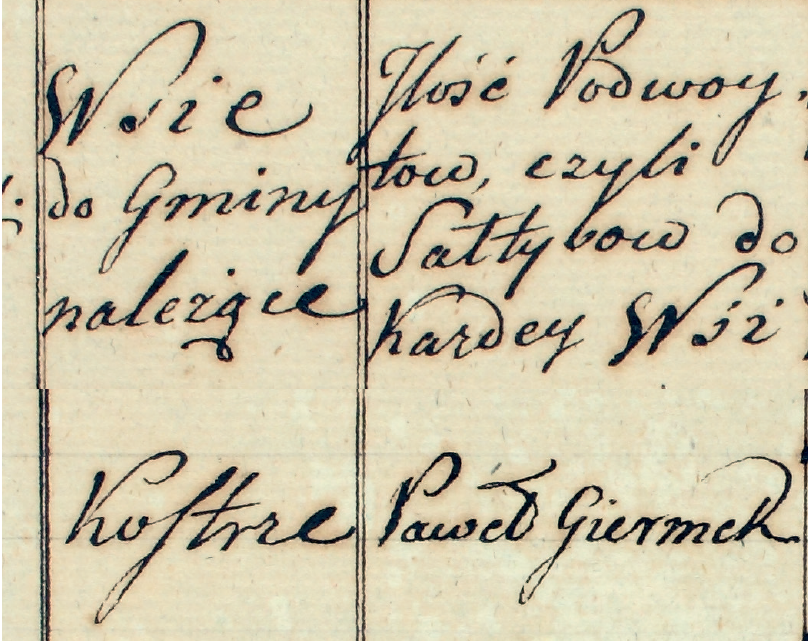 Wsie
do Gminy
należące
Jlość Podwoy,
tow, czyli
Sałtysow do
Kazdey Wsi
Kostrze
Paweł Giermek